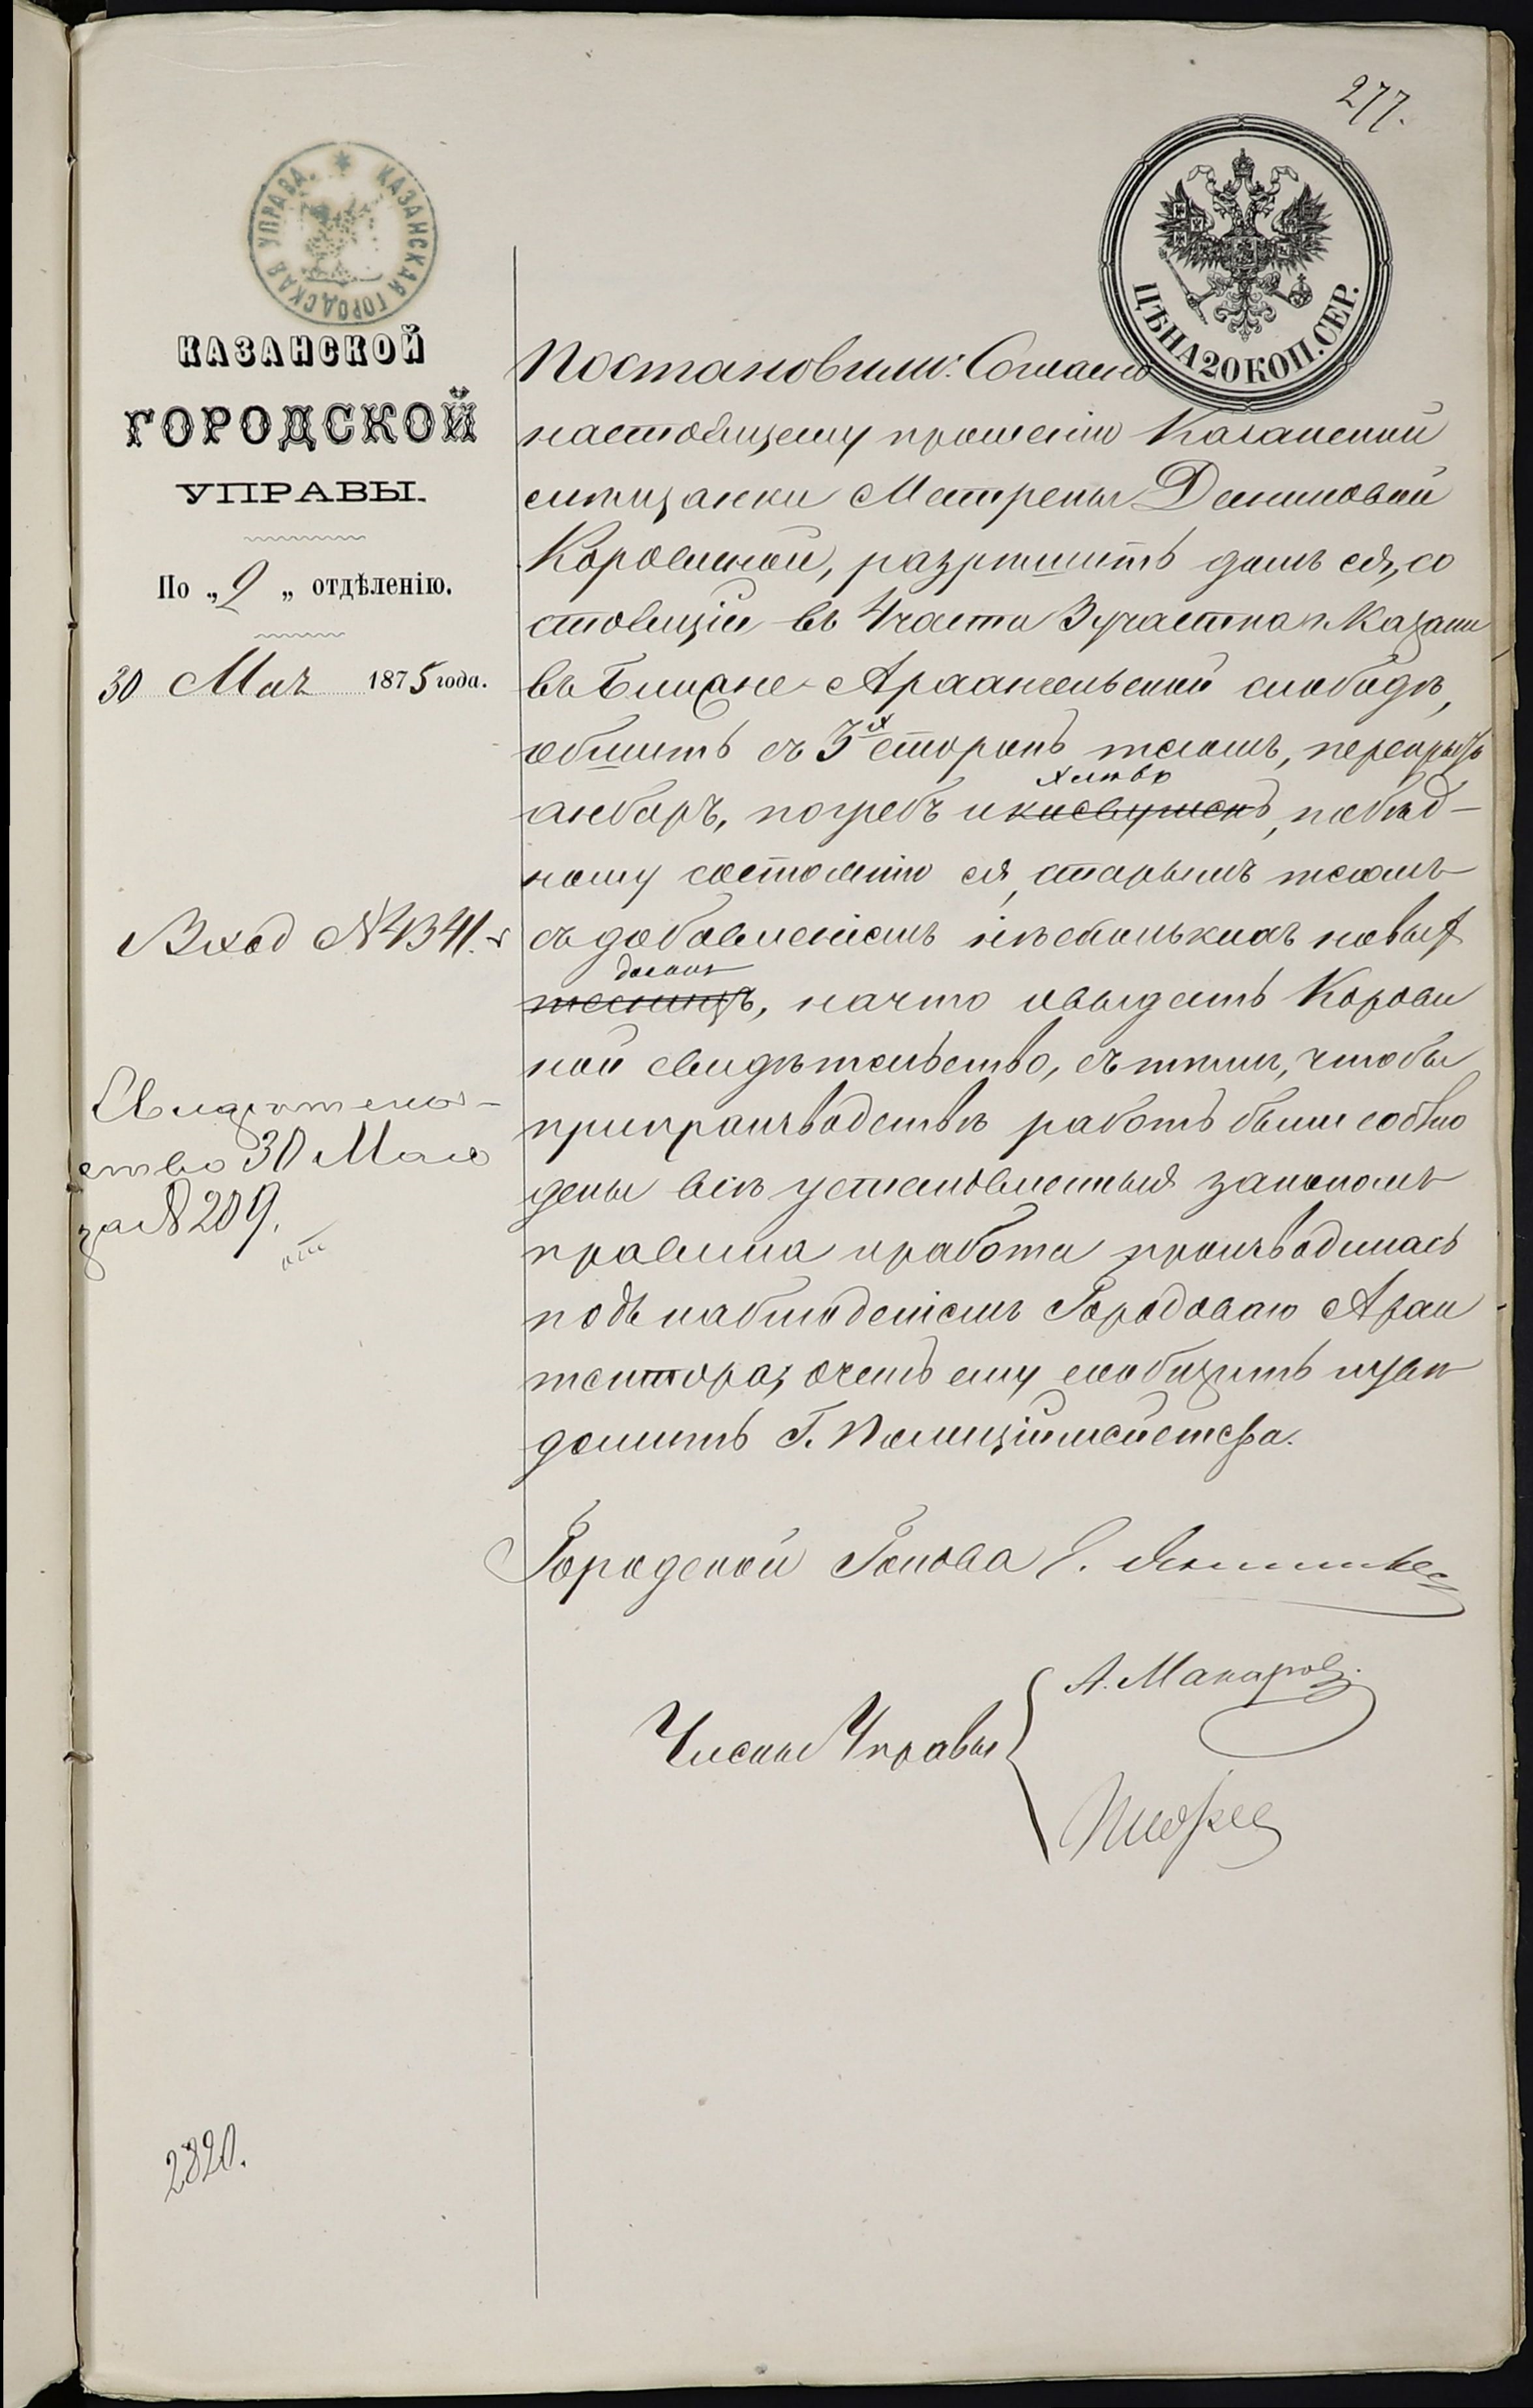 277.
КАЗАНСКАЯ ГОРОДСКАЯ УПРАВА.
ЦѢНА 20 КОП. СЕР.
КАЗАНСКОЙ
ГОРОДСКОЙ
УПРАВЫ.
По „2„ отдѣленію.
30 Мая 1875 года.
Вход №4341.
Свидѣтель-
ство 30 Мая
за №209.
2820.
Постановили: Согласно
настоящему прошенію Казанской
мѣщанки Матрены Даниловой
Коровиной, разрѣшить домъ ея, со
стоящій въ 4 части 3 участка г. Казани
въ Ближне-Архангельской слободѣ,
обшить съ 3х сторонъ тесомъ, перекрыть
анбаръ, погребъ и хлѣвъ, по бѣд-
ному состоянію ея, старымъ тесомъ
съ добавленіемъ нѣсколькихъ новых
досокъ, на что и выдать Корови
ной свидѣтельство, съ тѣмъ, чтобы
при производствѣ работъ были соблю
дены всѣ установленныя закономъ
правила и работа производилась
подъ наблюденіемъ Городоваго Архи
тектора, о чемъ ему сообщить и увѣ
домить Г. Полиціймейстера.
Городской Голова
Члены Управы
А. Макаровъ.